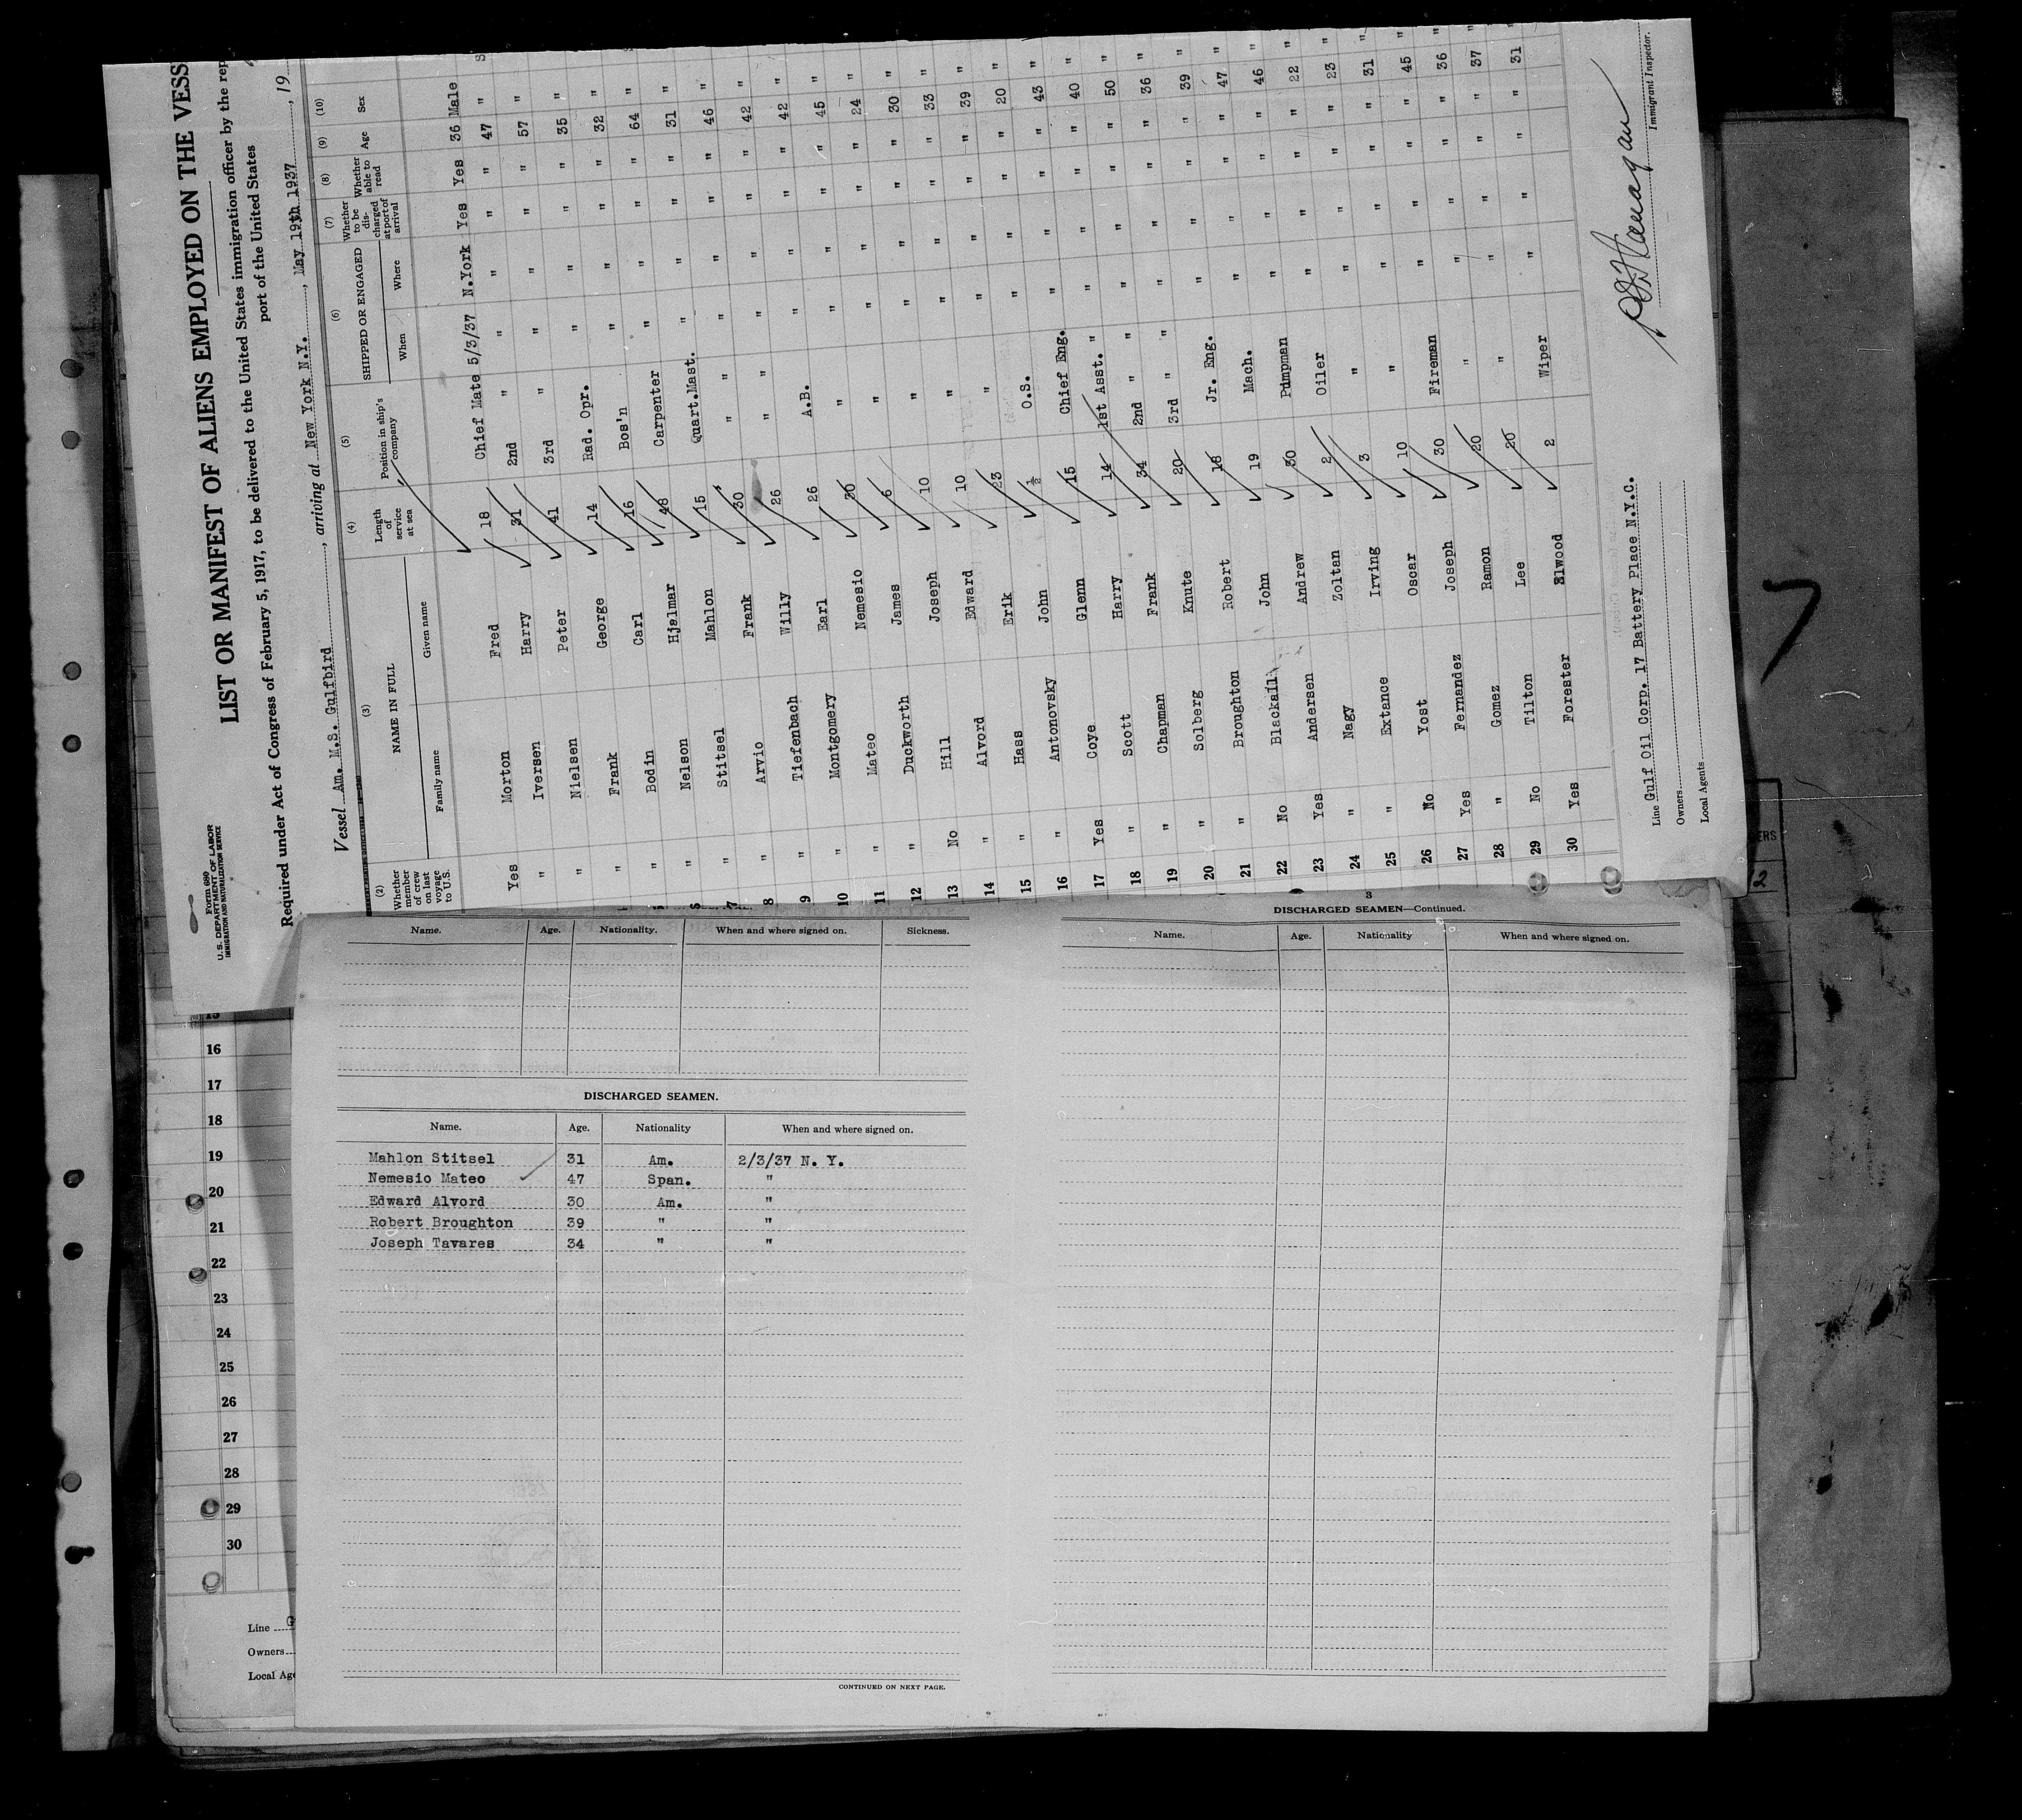 Form 680
U. S. DEPARTMENT OF LABOR
IMMIGRATION AND NATURALIZATION SERVICE
LIST OR MANIFEST OF ALIENS EMPLOYED ON THE VESS
Required under Act of Congress of February 5, 1917, to be delivered to the United States immigration officer by the rep
port of the United States
Vessel Am. M.S. Gulfbird, arriving at New York N.Y., May 19th 1937, 19
(2) (3) (4) (5) (6) (7) (8) (9) (10)
Whether member of crew on last voyage to U.S. NAME IN FULL Family name Given name Length of service at sea Position in ship's company SHIPPED OR ENGAGED When Where Whether to be discharged at port of arrival Whether able to read Age Sex
Yes Morton Fred 18 Chief Mate 5/3/37 N.York Yes Yes 36 Male S
" Iversen Harry 31 2nd " " " " " 47 "
" Nielsen Peter 41 3rd " " " " " 57 "
" Frank George 14 Rad. Opr. " " " " 35 "
" Bodin Carl 16 Bos'n " " " " 32 "
6 " Nelson Hjalmar 48 Carpenter " " " " 64 "
7 " Stitsel Mahlon 15 Quart.Mast. " " " " 31 "
8 " Arvio Frank 30 " " " " " 46 "
9 " Tiefenbach Willy 26 " " " " " 42 "
10 " Montgomery Earl 26 A.B. " " " " 42 "
11 " Mateo Nemesio 30 " " " " " 45 "
12 " Duckworth James 6 " " " " " 24 "
13 No Hill Joseph 10 " " " " " 30 "
14 " Alvord Edward 10 " " " " " 33 "
15 " Hass Erik 23 " " " " " 39 "
16 " Antonovsky John ½ O.S. " " " " 20 "
17 Yes Coye Glenn 15 Chief Eng. " " " " 43 "
18 " Scott Harry 14 1st Asst. " " " " " 40 "
19 " Chapman Frank 34 2nd " " " " " 50 "
20 " Solberg Knute 20 3rd " " " " " 36 "
21 " Broughton Robert 18 Jr. Eng. " " " " 39 "
22 No Blackall John 19 Mach. " " " " 47 "
23 Yes Andersen Andrew 30 Pumpman " " " " 46 "
24 " Nagy Zoltan 2 Oiler " " " " 22 "
25 " Extance Irving 3 " " " " " 23 "
26 No Yost Oscar 10 " " " " " 31 "
27 Yes Fernandez Joseph 30 Fireman " " " " 45 "
28 " Gomez Ramon 20 " " " " " 36 "
29 No Tilton Lee 20 " " " " " 37 "
30 Yes Forester Elwood 2 Wiper " " " " 31 "
Line Gulf Oil Corp. 17 Battery Place N.Y.C.
Owners
Local Agents
Immigrant Inspector.
7
ERS
2
Name. Age. Nationality. When and where signed on. Sickness.
DISCHARGED SEAMEN.
Name. Age. Nationality When and where signed on.
Mahlon Stitsel 31 Am. 2/3/37 N. Y.
Nemesio Mateo 47 Span. "
Edward Alvord 30 Am. "
Robert Broughton 39 " "
Joseph Tavares 34 " "
CONTINUED ON NEXT PAGE.
3
DISCHARGED SEAMEN—Continued.
Name. Age. Nationality When and where signed on.
15
16
17
18
19
20
21
22
23
24
25
26
27
28
29
30
Line
Owners
Local Age